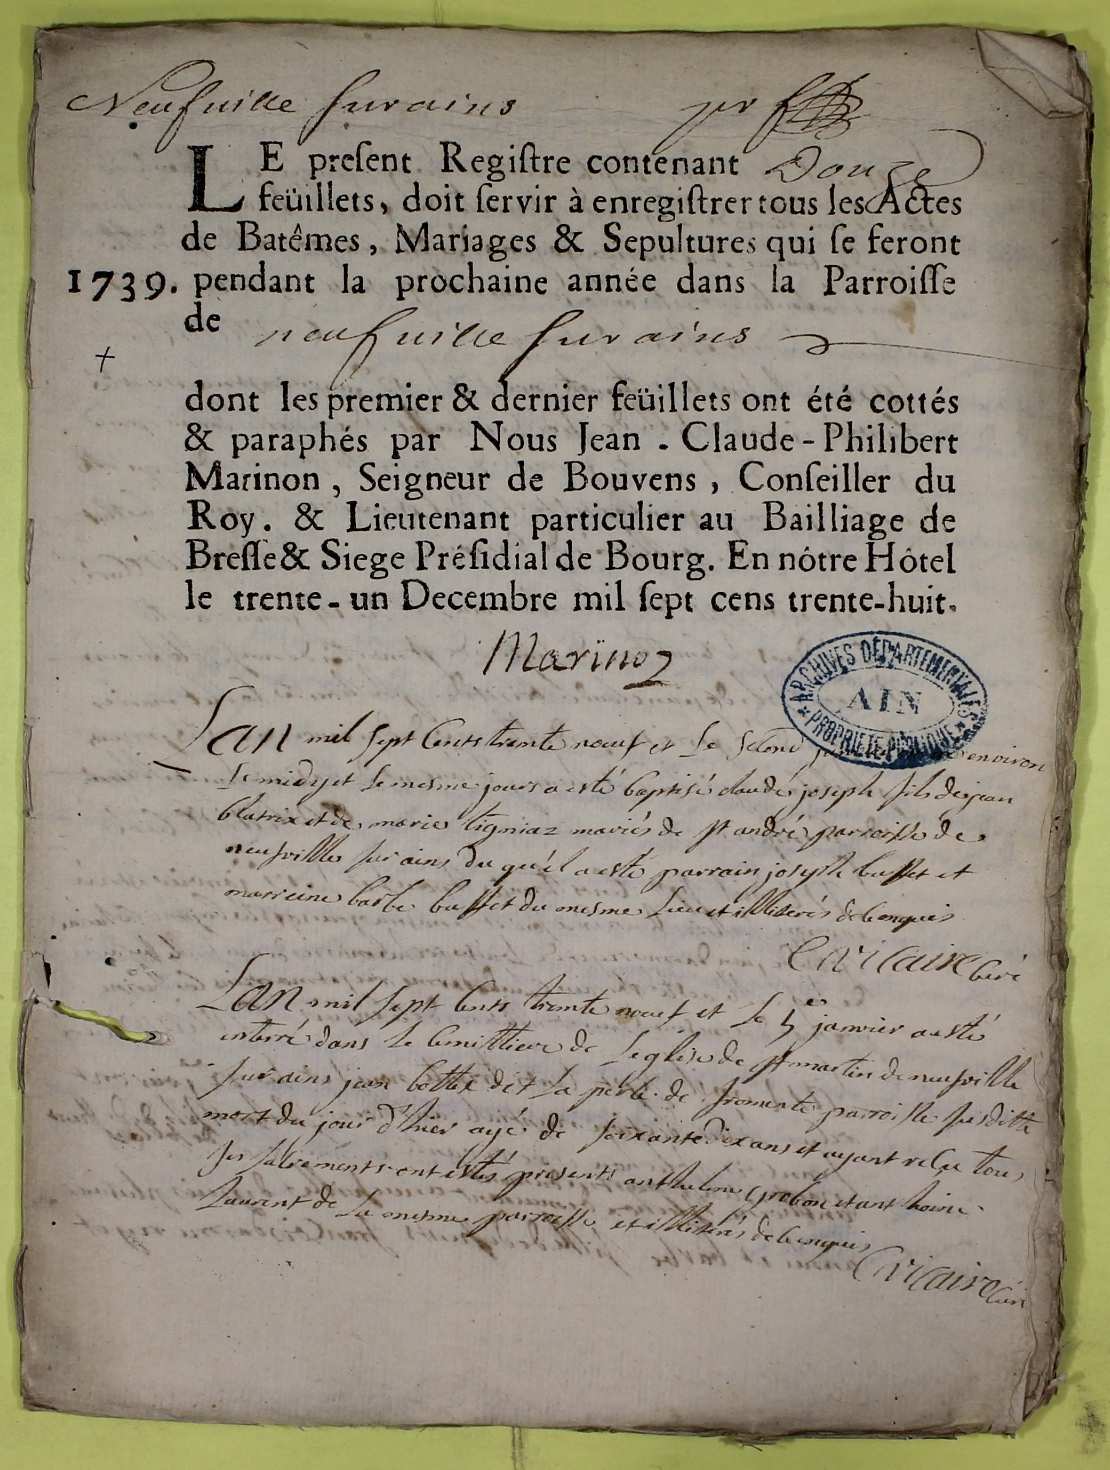 Neufuille sur ains
LE presẽnt Registre contenant Douze
feüillets, doit servir à enregistrer tous les Actes
de Batêmes, Mariages & Sepultures qui se feront
1739. pendant la prochaine année dans la Parroisse
de neufuille sur ains
dont les premier & dernier feüillets ont été cottés
& paraphés par Nous Jean - Claude - Philibert
Marinon, Seigneur de Bouvens, Conseiller du
Roy. & Lieutenant particulier au Bailliage de
Bresse & Siege Présidial de Bourg. En nôtre Hôtel
le trente-un Decembre mil sept cens trente-huit.
Marinon
ARCHIVES DÉPARTEMENTALES
AIN
PROPRIÉTÉ PUBLIQUE
Lan mil sept Cents trente neuf et le second environ
le midy et le mesme jour a esté baptisé claude joseph fils de jean
blatrix et de marie tigniaz mariés de st andré parroisse de
neufville sur ains du quel a esté parrain joseph buffet et
marreine barbe buffet du mesme lieu et illiterés de ce enquis
C vicaire Curé
Lan mil sept Cents trente neuf et le 5 janvier a esté
enterré dans le Cemittiere de Leglise de st martin de neufville
sur ains jean bottex dit la perle de fromente parroisse susditte
mort du jour d'hier agé de soixante dix ans et ayant reçu tous
ses sacrements ont estés presents anthelme grobon et anthoine
Laurent de la mesme parroisse et illiterés de ce enquis
C vicaire Curé